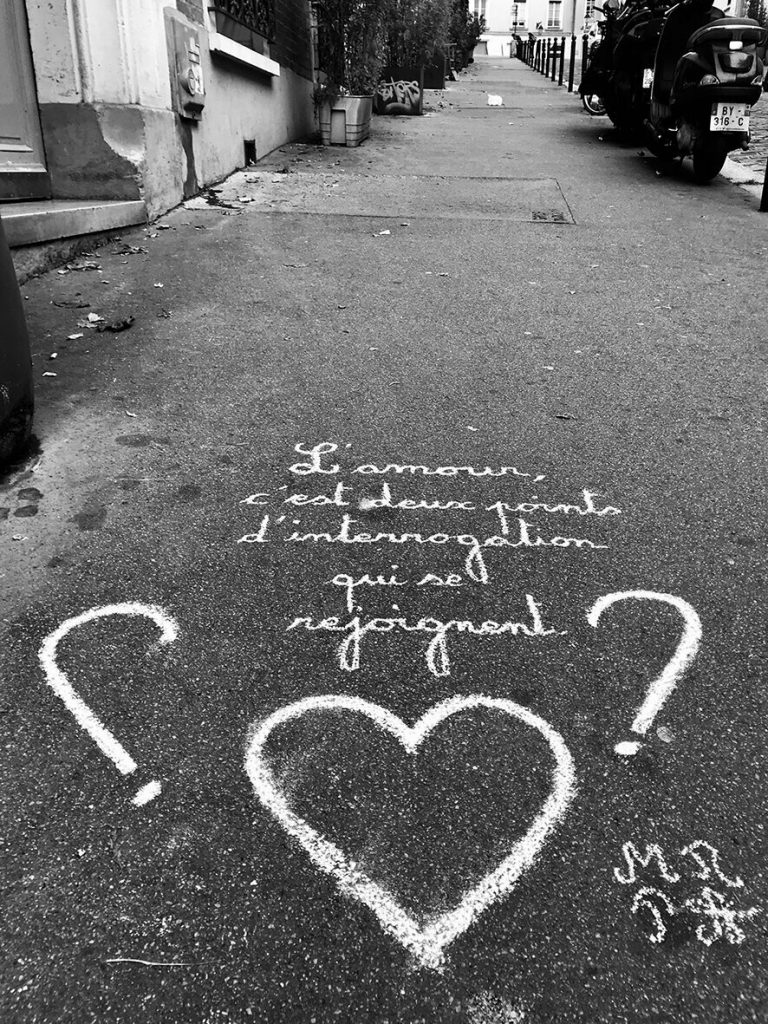 BY
316-C
L'amour,
c'est deux points
d'interrogation
qui se
rejoignent.
? ?